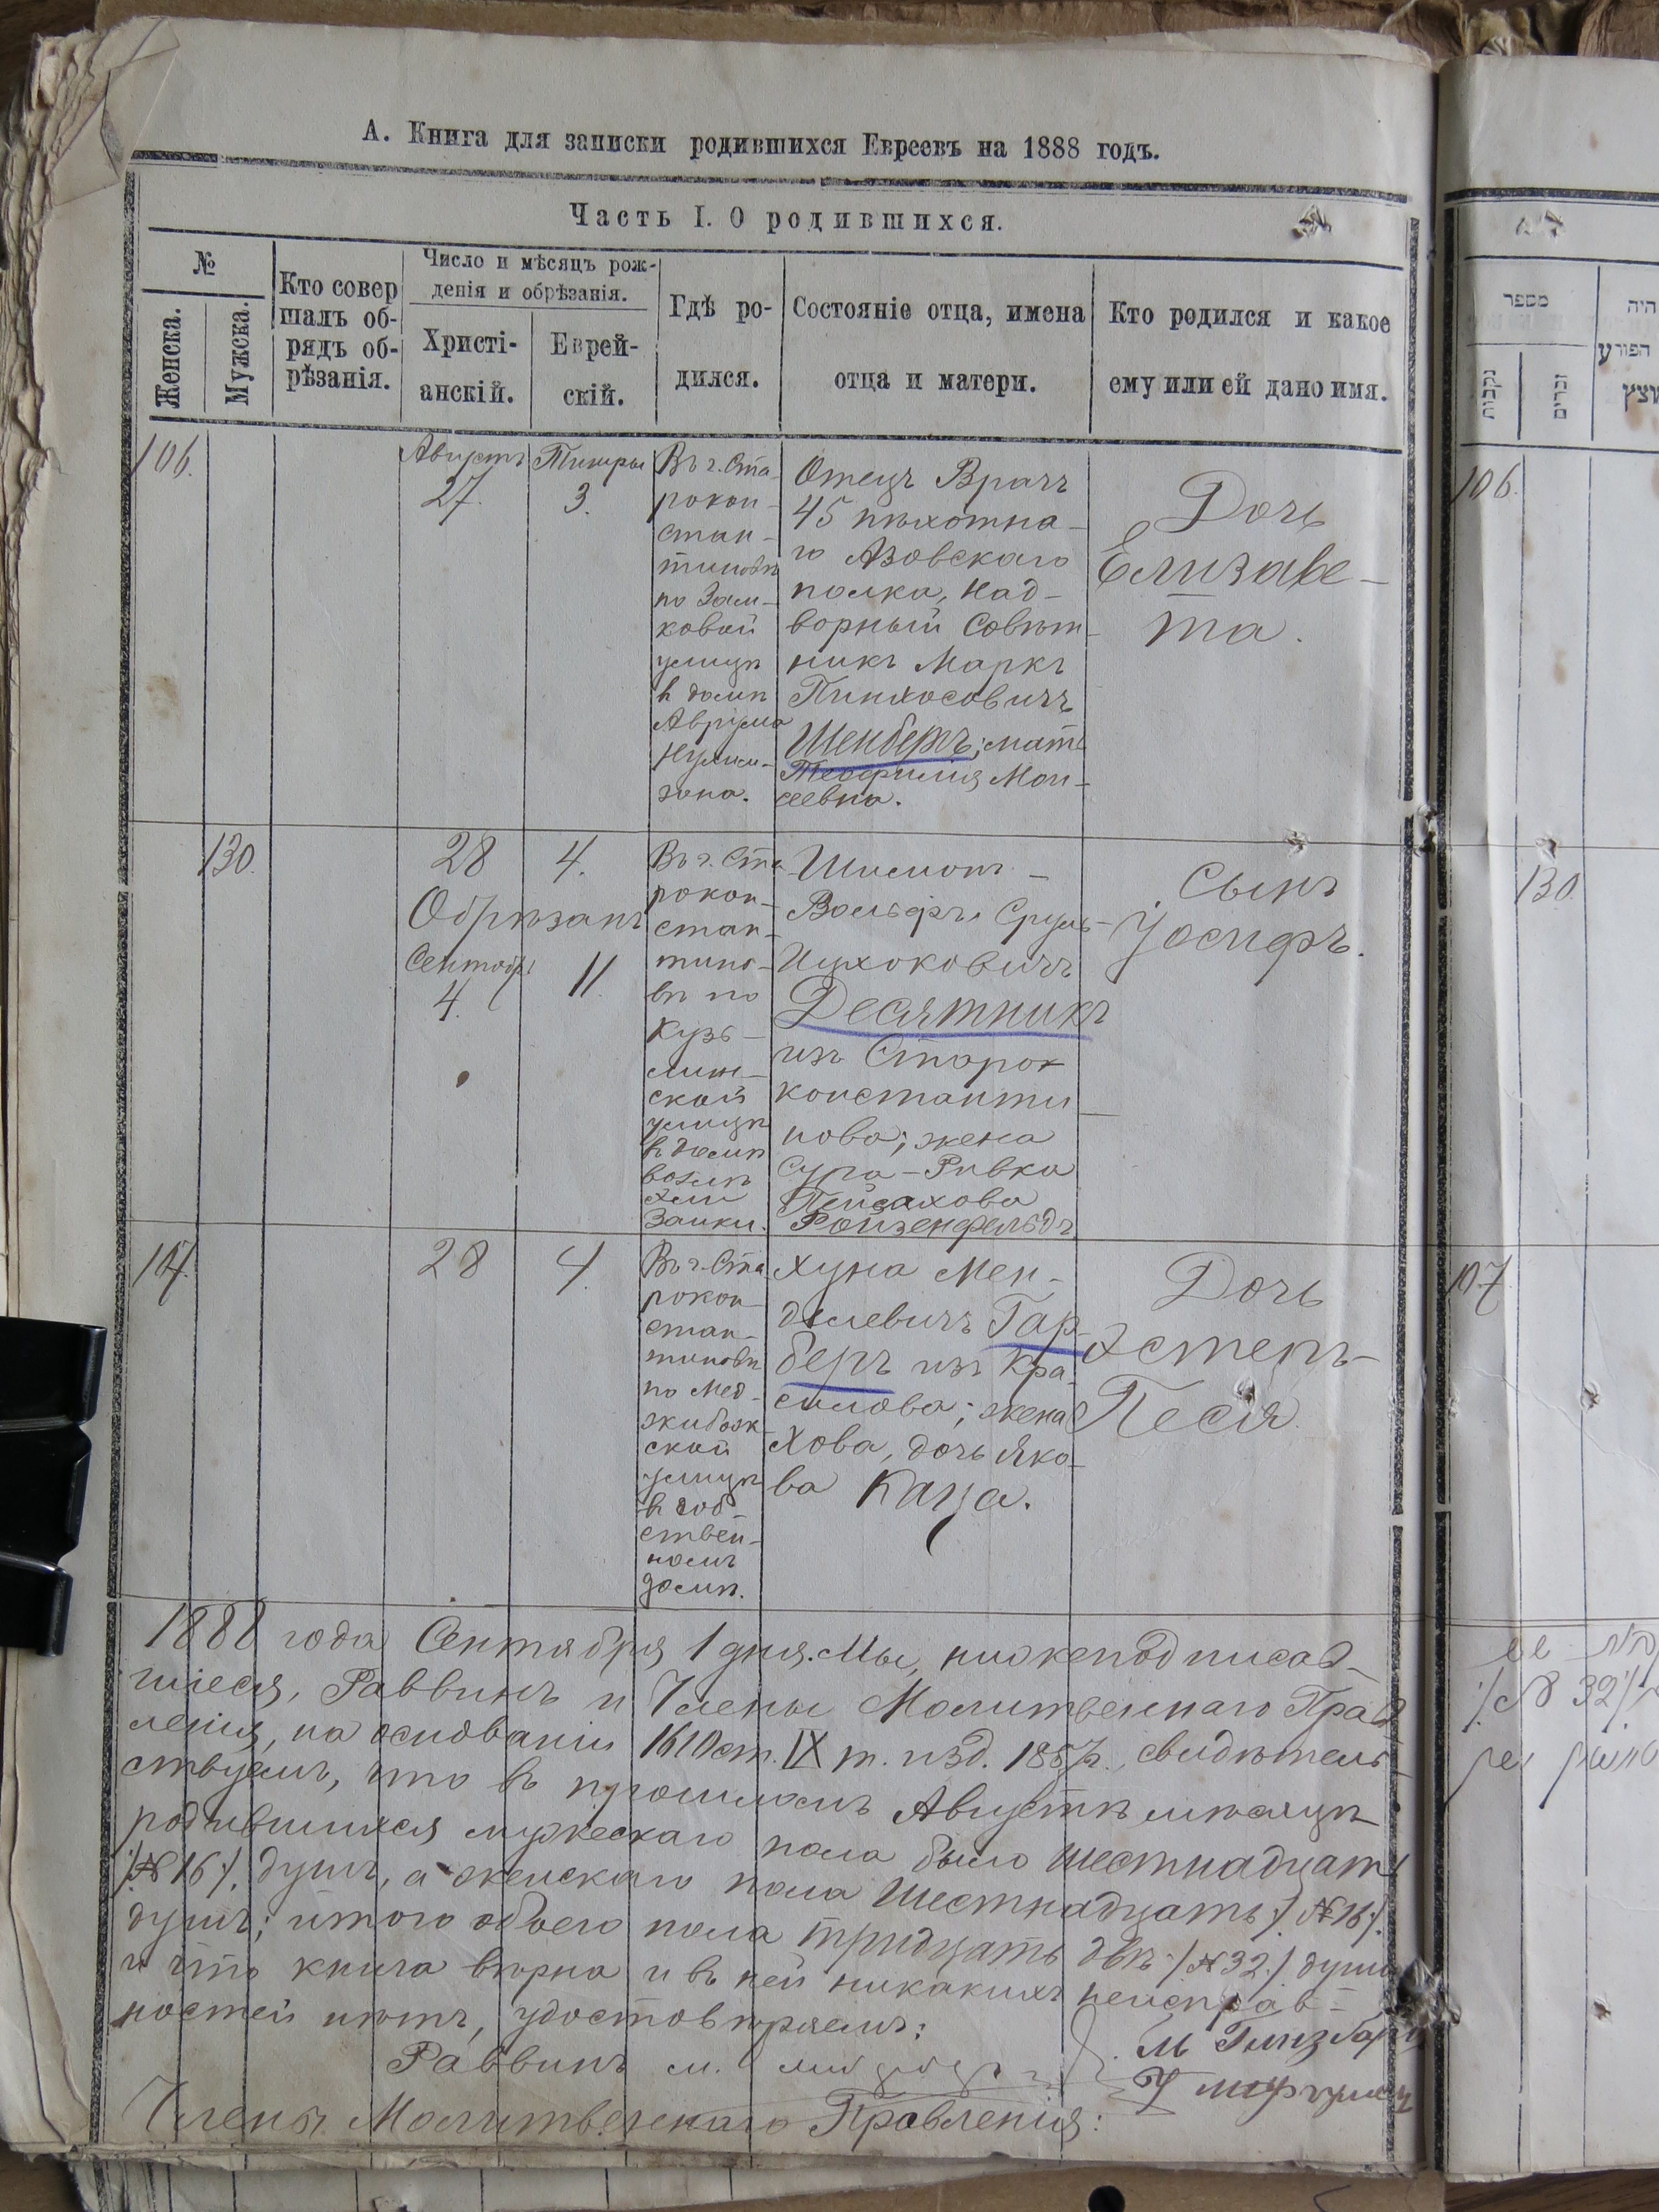 А. Книга для записки родившихся Евреевъ на 1888 годъ.
Часть I. О родившихся.
№
Женска.
Мужска.
Кто совер
шалъ об-
рядъ об-
рѣзанія.
Число и мѣсяцъ рож-
денія и обрѣзанія.
Христі-
анскій.
Еврей-
скій.
Гдѣ ро-
дился.
Состояніе отца, имена
отца и матери.
Кто родился и какое
ему или ей дано имя.
106.
Августъ
27.
Тишры
3.
Въ г. Ста
рокон-
стан-
тиновѣ
по Зам-
ковой
улицѣ
в домѣ
Аврума
зона.
Отецъ Врачъ
45 пѣхотна-
го Азовскаго
полка, Над-
ворный Совѣт-
никъ Маркъ
Пинхосовичъ
Шенбергъ; мать
Теофилия Мои-
сеевна.
Дочь
Елизаве-
та.
130.
28
Обрѣзанъ
Сентябрь
4.
4.
11.
Въ г. Ста
рокон-
стан-
тино-
вѣ по
Кузь-
мин-
ской
улицѣ
в домѣ
Заики.
Шимонъ-
Вольфъ Сруль-
Ицхоковичъ
Десятникъ
изъ Старо
константи-
нова; жена
Сура-Ривка
Пейсахова
Ройзенфельдъ
Сынъ
Іосифъ.
107.
28
4.
Въ г. Ста
рокон-
стан-
тиновѣ
по Мед-
жибож-
ской
улицѣ
в соб-
ствен-
номъ
домѣ.
Хуна Мен-
делевичъ Гар-
беръ изъ Кра-
силова; жена
Хова, дочь Яко-
ва Каца.
Дочь
Эстеръ-
Песя.
1888 года Сентября 1 дня. Мы, нижеподписав-
шіеся, Раввинъ и Члены Молитвеннаго Прав
ленія, на основаніи 1610 ст. IX т. изд. 1857 г., свидѣтель-
ствуемъ, что въ прошломъ Августѣ мѣсяцѣ
родившихся мужескаго пола было шестнадцать
/№ 16/. душъ, а женскаго пола шестнадцать /№ 16/.
душъ; итого обоего пола тридцать двѣ /№ 32./ души
и что книга вѣрна и въ ней никакихъ неисправ-
ностей нѣтъ, удостовѣряемъ:
Раввинъ м.
Члены Молитвеннаго Правленія:
М Гинзбарг
מספר
נקבות
זכרים
היה
הפורע
106.
130.
107.